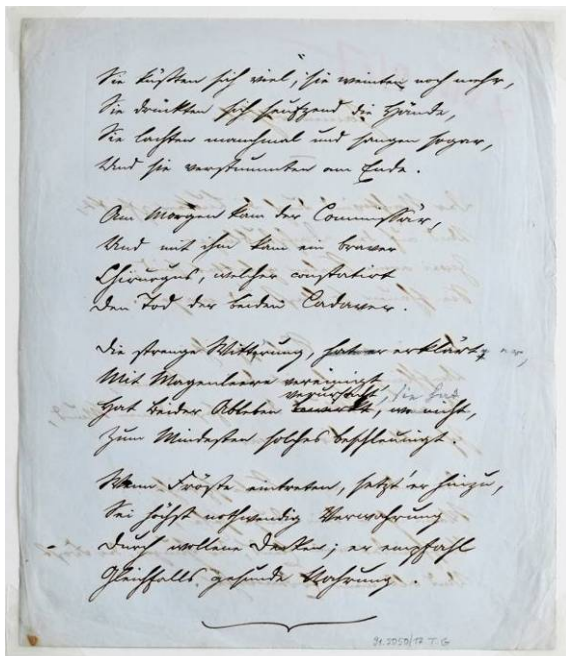 Sie küßten sich viel, sie weinten noch mehr,
Sie drückten sich seufzend die Hände,
Sie lachten manchmal und sangen sogar,
Und sie verstummten am Ende.
Am Morgen kam der Commissär,
Und mit ihm kam ein braver
Chirurgus, welcher constatirt
Den Tod der beiden Cadaver.
Die strenge Wittrung, erklärte er,
Mit Magenleere vereinigt,
verursacht, sie hat
Hat Beider Ableben bewirkt, wo nicht,
Zum Mindesten solches beschleunigt.
Wenn Fröste eintreten, setzt' er hinzu,
Sei höchst nothwendig Verwahrung
Durch wollene Decken; er empfahl
Gleichfalls gesunde Nahrung.